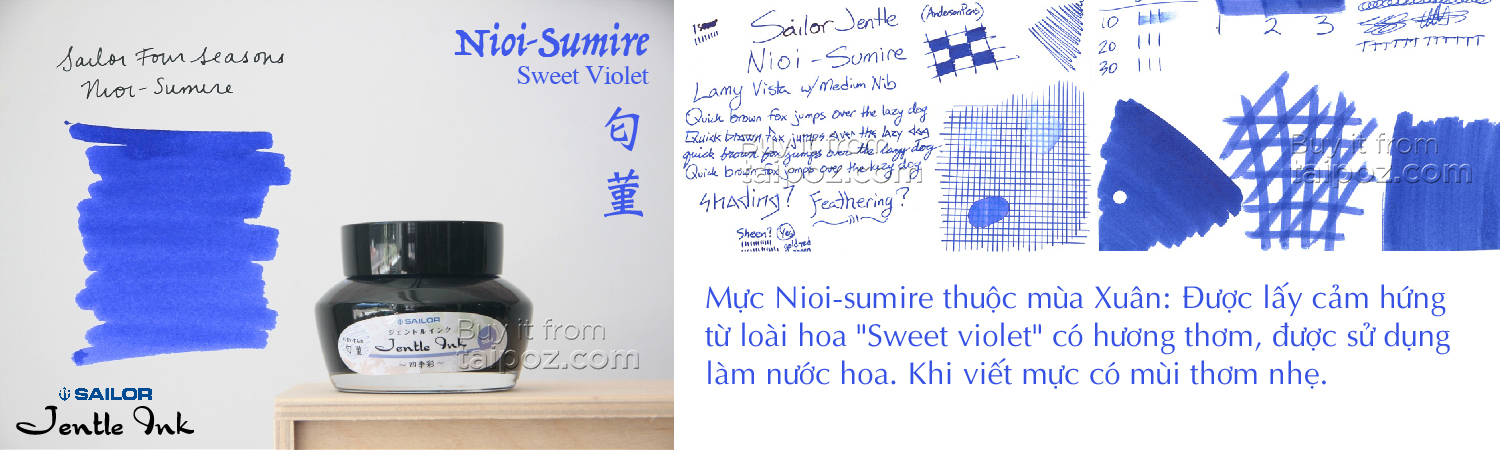 Sailor Four Seasons
Nioi-Sumire
Nioi-Sumire
Sweet Violet
匂
菫
SAILOR
ジェントルインク
匂菫
Jentle Ink
～四季彩～
Buy it from
taipoz.com
SAILOR
Jentle Ink
Sailor Jentle
(AndersonPens)
Nioi-Sumire
Lamy Vista w/ Medium Nib
Quick brown fox jumps over the lazy dog
Quick brown fox jumps over the lazy dog
quick brown fox jumps over the lazy dog
Quick brown fox jumps over the lazy dog
Buy it from
taipoz.com
Shading? Feathering?
Sheen? Yes
gold red
10
20
30
1 2 3
Buy it from
taipoz.com
Mực Nioi-sumire thuộc mùa Xuân: Được lấy cảm hứng
từ loài hoa "Sweet violet" có hương thơm, được sử dụng
làm nước hoa. Khi viết mực có mùi thơm nhẹ.